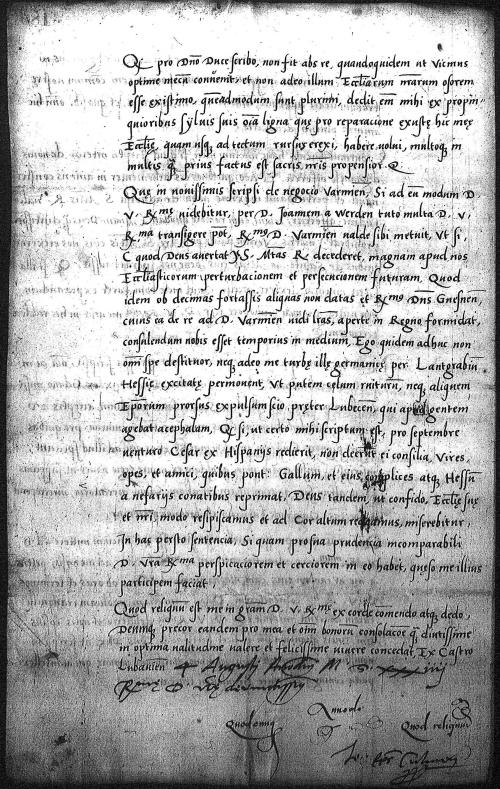 Qd pro Dno Duce scribo, non fit abs re, quandoquidem ut Vicinus
optime mecu convenit, et non adeo illum Eccliarum nrarum osorem
esse existimo, queadmodum sunt plurimi, dedit em mihi ex propin=
quioribus sylvis suis oia ligna que pro reparacione exustę hic meę
Ecclię, quam usq ad tectum rursus erexi, habere volui, multoq in
multis q prius factus est sacris nris propensior.
Que in novissimis scripsi de negocio Varmien, Si ad eu modum D
v. Rme videbitur, per D. Joannem a Werden tuto multa D. v.
Rma transigere pot, Rmo D. Varmien valde sibi metuit, Ut si,
C quod Deus avertat S. Mtas R. decederet, magnam apud nos
Eccliasticorum perturbacionem et persecucionem futuram, Quod
idem ob decimas fortassis aliquas non datas et Rmo Dns Gnesnen,
cuius ea de re ad D. Varmien vidi lras, aperte in Regno formidat,
consulendum nobis esset temporius in medium, Ego quidem adhuc non
om spe destituor, neq adeo me turbę illę germanię per Lantgrabiu
Hessię excitatę permovent, Ut putem celum ruiturum, neq aliquem
Eporum prorsus expulsum scio, pręter Lubecen, qui apud gentem
agebat acephalam, Q si, ut certo mihi scriptum est, pro septembre
venturo Cesar ex Hispanijs redierit, non deerut ei consilia, Vires,
opes, et amici, quibus pont Gallum, et eius complices atq Hessu
a nefarijs conatibus reprimat, Deus tandem, ut confido, Ecclię suę
et nri, modo resipiscamus et ad Cor altum redeamus, miserebitur,
In has persto sentencia, Si quam pro sua prudencia incomparabili
D. vra Rma perspicaciorem et cerciorem in eo habet, queso me illius
participem faciat.
Quod reliquu est me in gram D. v. Rme ex corde comendo atq dedo
Deumq precor eandem pro mea et oim bonoru consolacoe q diutissime
in optima valitudine valere et felicissime vivere concedat, Ex Castro
Lubavien 4 Augusti M D xxxiiij
Rme D. Vre deditissimus
Quod reliquu